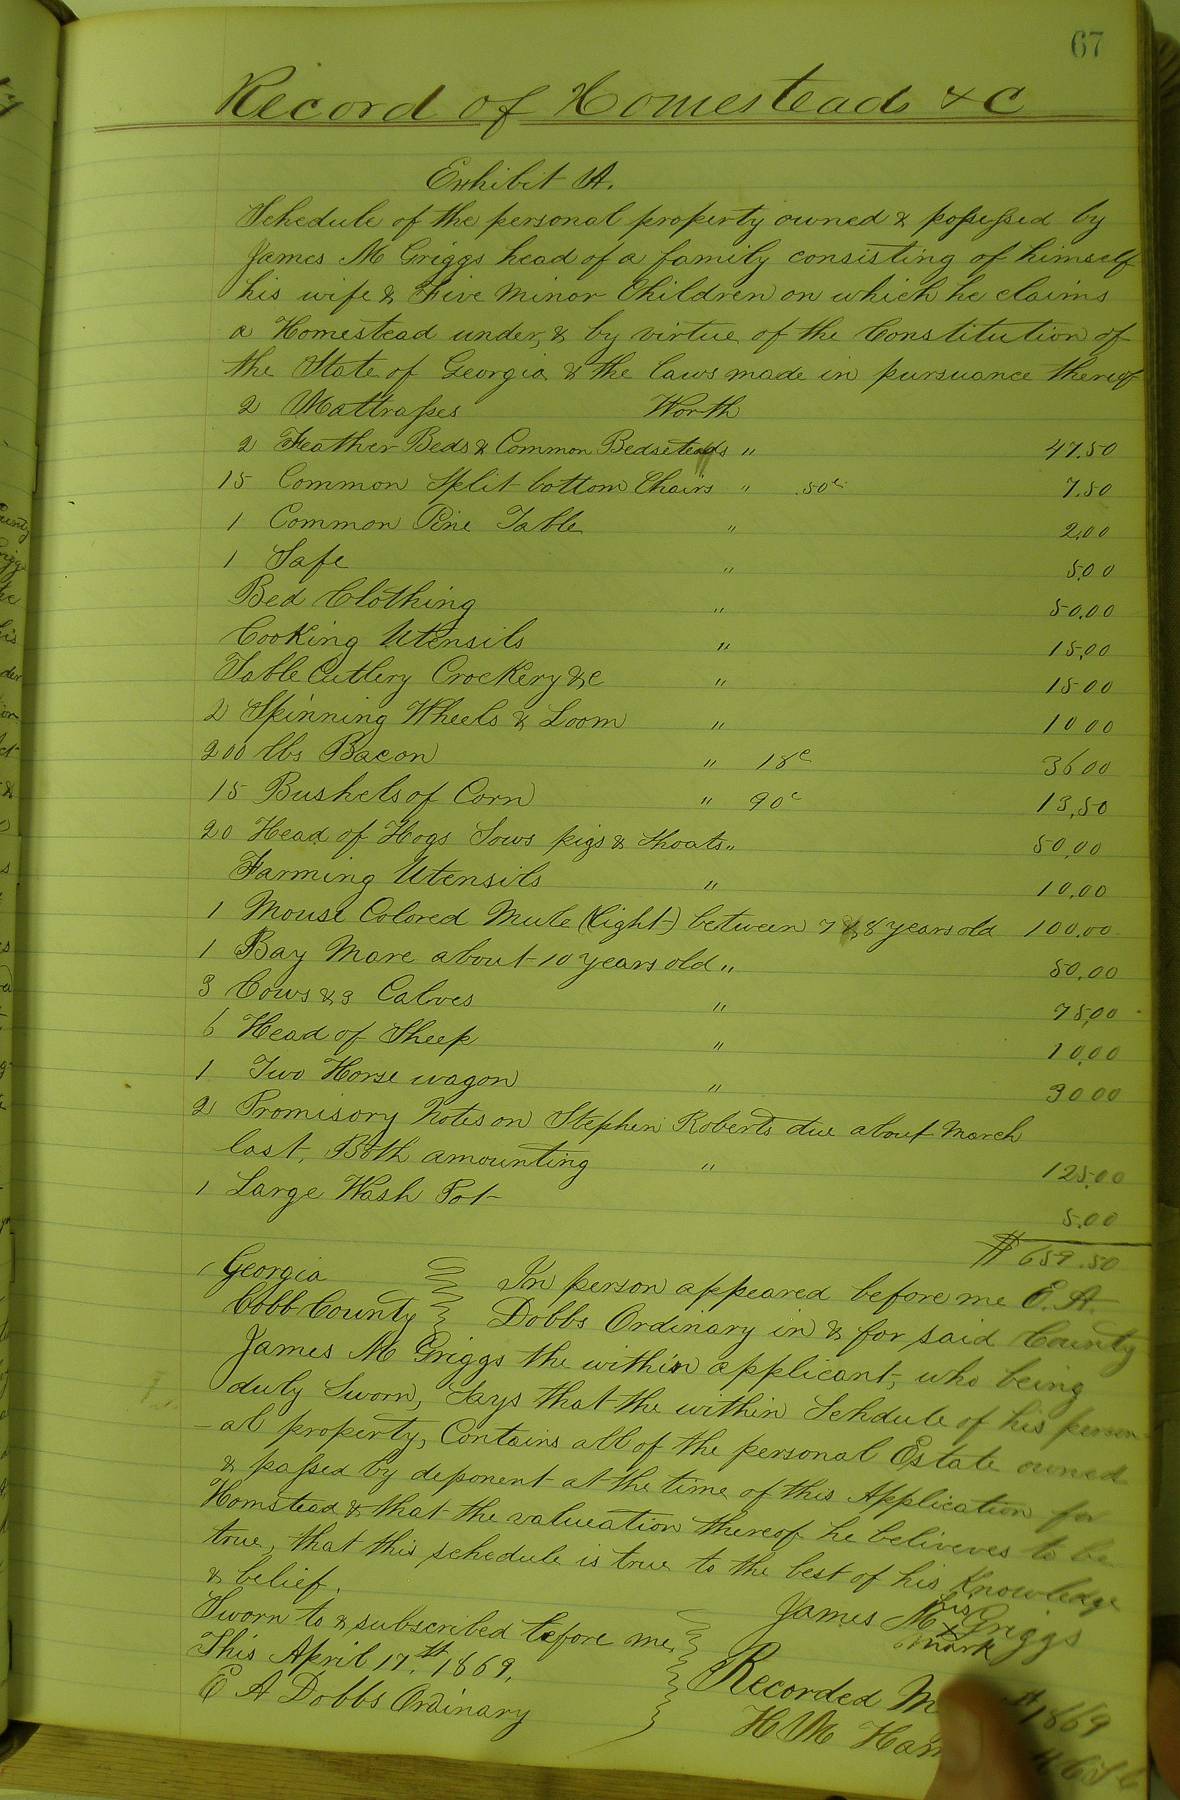 67
Record of Homestead & C
Exhibit A.
Schedule of the personal property owned & possessed by
James M Griggs head of a family consisting of himself
his wife & Five Minor Children on which he claims
a Homestead under, & by virtue of the Constitution of
the State of Georgia & the laws made in pursuance thereof
2 Mattrasses Worth
2 Feather Beds & Common Bedsteads " 47.50
15 Common Split bottom Chairs " .50c 7.50
1 Common Pine Table " 2.00
1 Safe " 5.00
Bed Clothing " 50.00
Cooking Utensils " 15.00
Table Cutlery Crockery &c " 15 00
2 Spinning Wheels & Loom " 10 00
200 lbs Bacon " 18c 36 00
15 Bushels of Corn " 90c 13.50
20 Head of Hogs Sows pigs & shoats " 50.00
Farming Utensils " 10.00
1 Mouse Colored Mule (light) between 7 & 8 years old 100.00
1 Bay Mare about 10 years old " 50.00
3 Cows & 3 Calves " 75.00
6 Head of Sheep " 10.00
1 Two Horse wagon " 30 00
2 Promisory Notes on Stephen Roberts due about March
last, Both amounting " 125.00
1 Large Wash Pot 5.00
$ 659.50
Georgia In person appeared before me E. A.
Cobb County Dobbs Ordinary in & for said County
James M Griggs the within applicant, who being
duly Sworn, Says that the within Schdule of his person
-al property, Contains all of the personal Estate owned
& possed by deponent at the time of this Application for
Homstead & that the valueation thereof he beliveves to be
true, that this schedule is true to the best of his Knowledge
& belief.
Sworn to & subscribed before me James M his x mark Griggs
This April 17th 1869.
E A Dobbs Ordinary Recorded 1869
H M